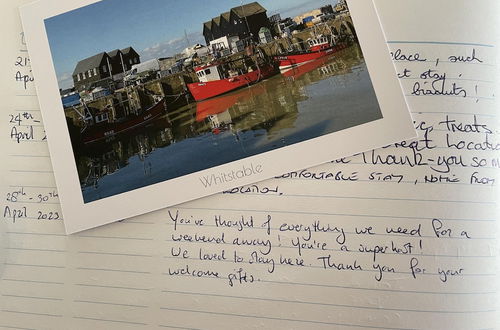 21
Apr
place, such
stay.
biscuits!
24th
April 2
treats
great locatio
Thank-you so m
COMFORTABLE STAY, NOTHE FROM
LOCATION.
Whitstable
28th - 30th
April 2023
You've thought of everything we need for a
weekend away! You're a superhost!
We loved to stay here. Thank you for your
welcome gifts.